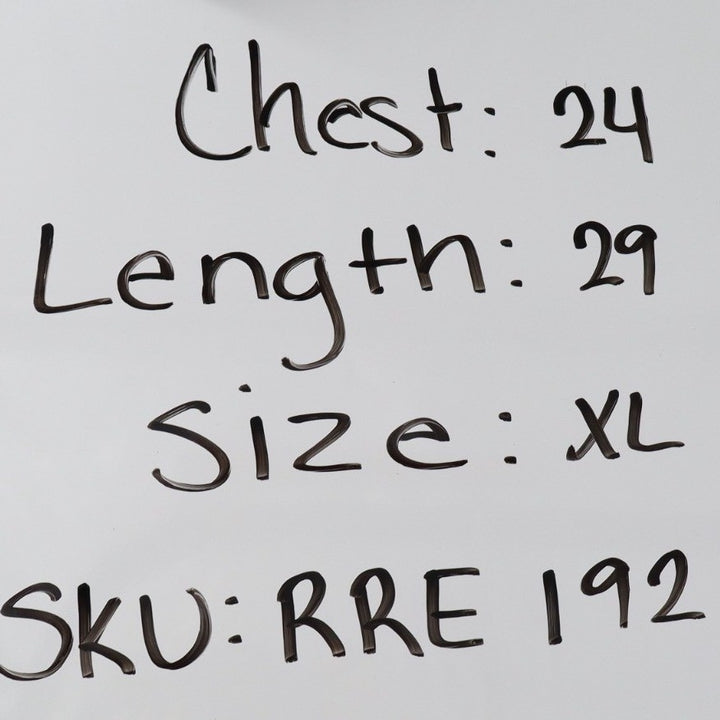 Chest: 24
Length: 29
Size: XL
SKU: RRE 192